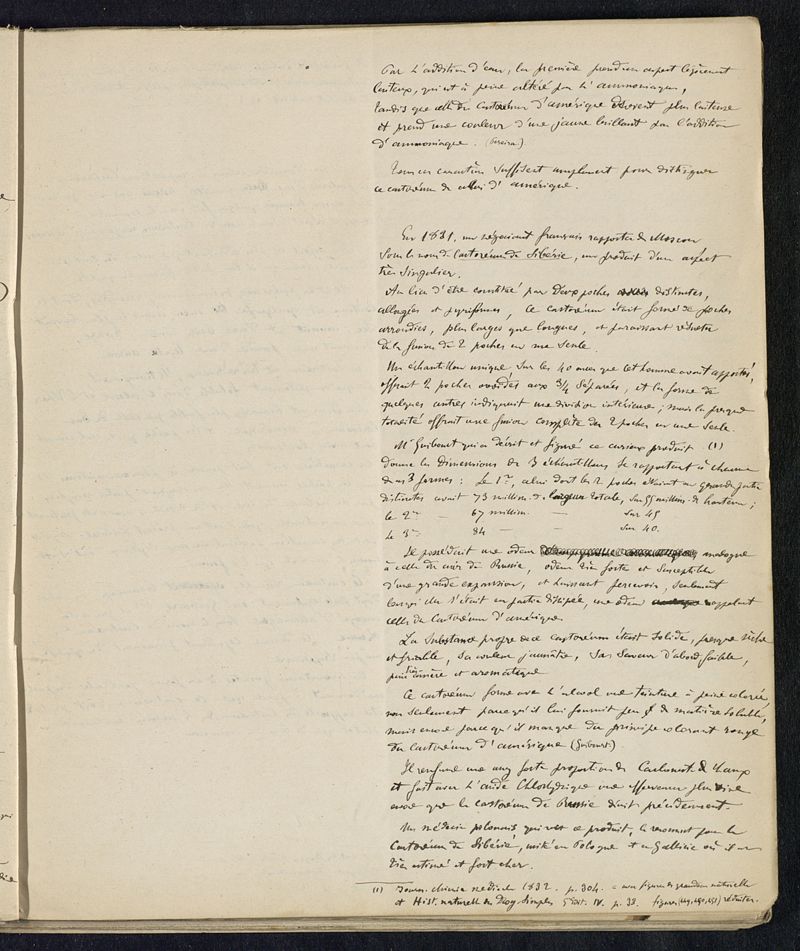 Par l'addition d'eau, la première prend un aspect légèrement
laiteux, qui est à peine altéré par l'ammoniaque,
tandis que celle du castoréum d'amérique devient plus laiteuse
et prend une couleur d'une jaune brillant par l'addition
d'ammoniaque. (Pereira.)
Tous ces caractères suffisent amplement pour distinguer
ce castoréum de celui d'amérique.
En 1831, un négociant français rapporta de Moscou
sous le nom de Castoréum de Sibérie, un produit d'un aspect
très singulier.
Au lieu d'être constitué par deux poches distinctes,
allongées et pyriformes, ce castoréum était formé de poches
arrondies, plus larges que longues, et paraissant résulter
de la fusion de 2 poches en une seule.
Un échantillon unique, sur les 40 onces que cet homme avait apportés,
offrait 2 poches ovoïdes aux 3/4 séparées, et la forme de
quelques autres indiquait une division intérieure; mais la presque
totalité offrait une fusion complète des 2 poches en une seule.
Mr Guibourt qui a décrit et figuré ce curieux produit (1)
donne les dimensions de 3 échantillons se rapportant à chacune
de ces 3 formes : Le 1er, celui dont les 2 poches étaient en grande partie
distinctes avait 73 millim. de largeur totale, sur 55 millim. de hauteur;
le 2me — 67 millim. — sur 45
le 3me 84 — — sur 40.
Il possédait une odeur analogue
à celle du cuir de Russie, odeur très forte et susceptible
d'une grande expansion, et laissant percevoir, seulement
lorsqu'elle s'était en partie dissipée, une odeur rappelant
celle du Castoréum d'amérique
La substance propre de ce castoréum était solide, presque sèche
et friable, sa couleur jaunâtre, sa saveur d'abord faible,
puis très amère et aromatique
Ce castoréum forme avec l'alcool une teinture à peine colorée
non seulement parce qu'il lui fournit peu de matière soluble,
mais encore parce qu'il manque du principe colorant rouge
du Castoréum d'amérique (Guibourt).
Il renferme une assez forte proportion de Carbonate de chaux
et fait avec l'acide Chlorhydrique une effervescence plus vive
encore que le castoréum de Russie décrit précédemment.
Un médecin polonais, qui vit ce produit, le reconnut pour le
Castoréum de Sibérie, usité en Pologne et en Gallicie où il est
très estimé et fort cher.
(1) Journ. chimie médicale 1832. p. 304. avec figures de grandeur naturelle
et Hist. naturelle des Drog. Simples 5e édit. IV. p. 38. figures (449, 450, 451) réduites.